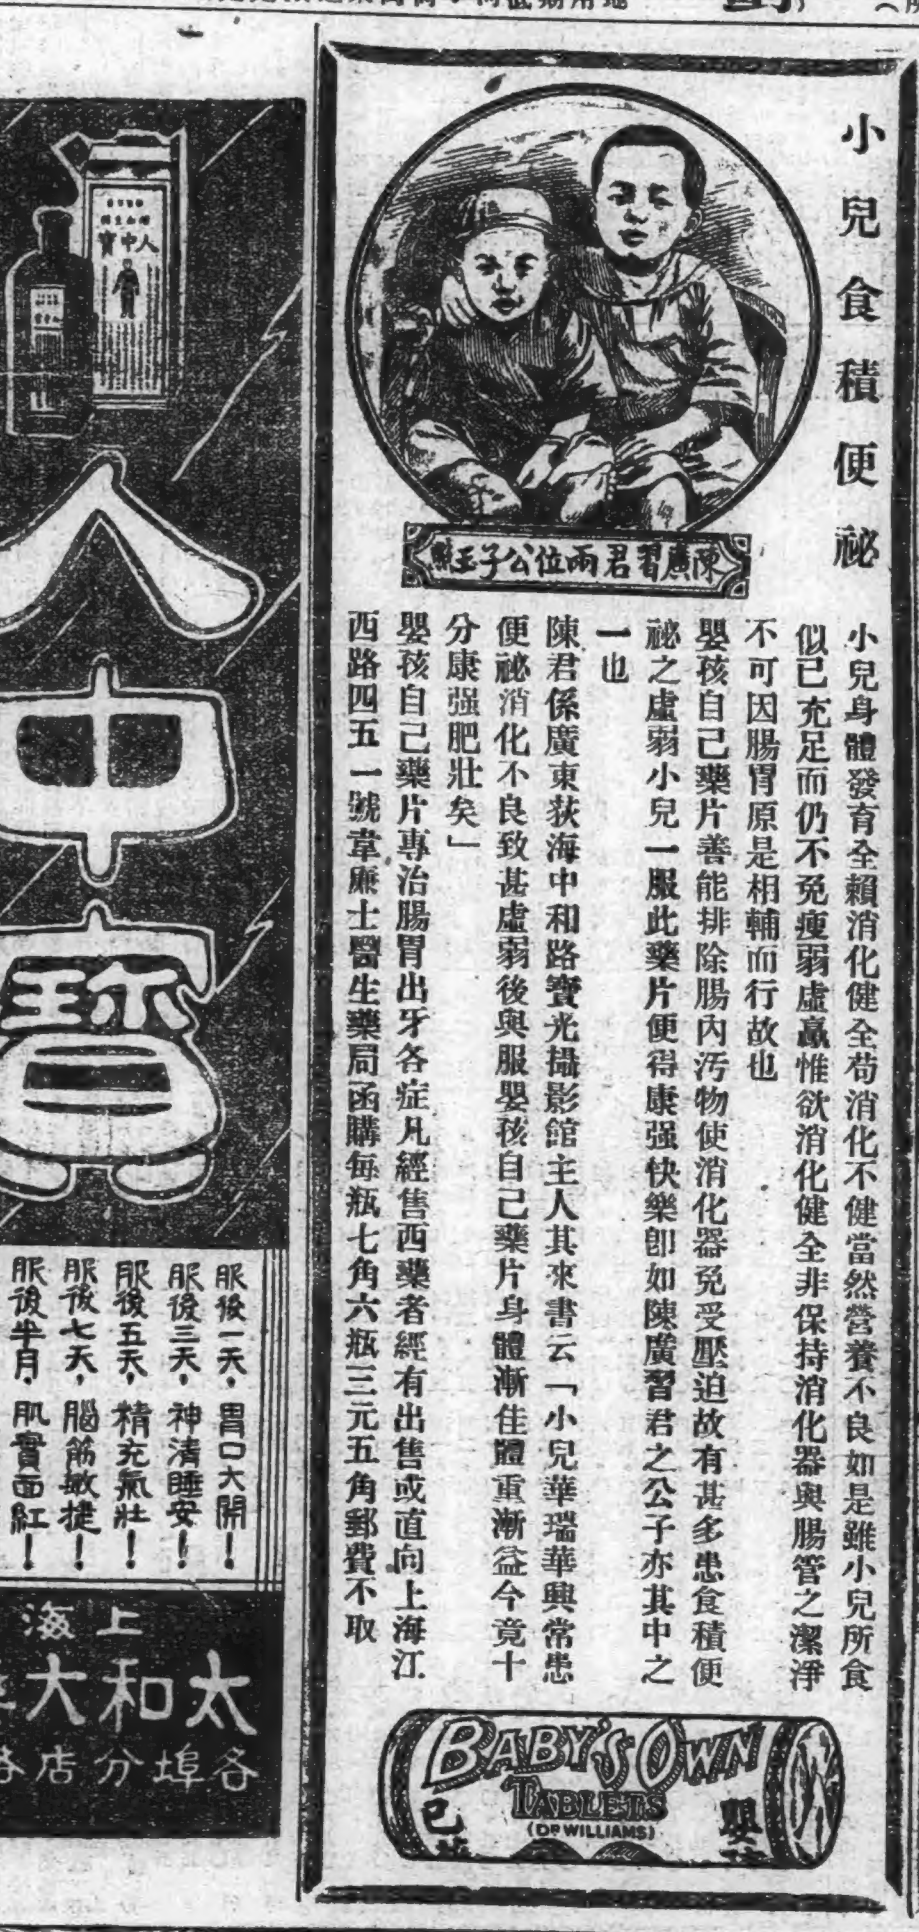 小兒食積便祕
陳廣習君兩位公子玉照
小兒身體發育全賴消化健全苟消化不健當然營養不良如是雖小兒所食
似已充足而仍不免瘦弱虛羸惟欲消化健全非保持消化器與腸管之潔淨
不可因腸胃原是相輔而行故也
嬰孩自己藥片善能排除腸內汚物使消化器免受壓迫故有甚多患食積便
祕之虛弱小兒一服此藥片便得康强快樂卽如陳廣習君之公子亦其中之
一也
陳君係廣東荻海中和路寶光攝影館主人其來書云「小兒華瑞華興常患
便祕消化不良致甚虛弱後與服嬰孩自己藥片身體漸佳體重漸益今竟十
分康强肥壯矣」
嬰孩自己藥片專治腸胃出牙各症凡經售西藥者經有出售或直向上海江
西路四五一號韋廉士醫生藥局函購每瓶七角六瓶三元五角郵費不取
BABY'S OWN
TABLETS
(DR WILLIAMS)
嬰
己
人中寶
人中寶
服後一天,胃口大開!
服後三天,神清睡安!
服後五天,精充氣壯!
服後七天,腦筋敏捷!
服後半月,肌實面紅!
上海
太和大
各埠分店